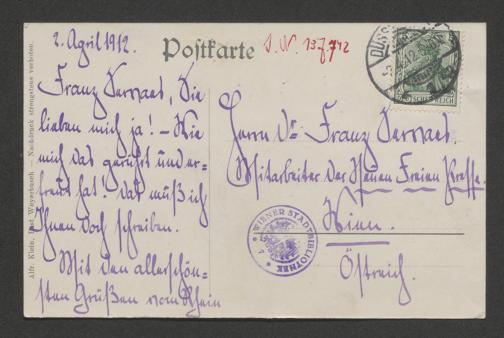 2. April 1912.
Postkarte
I. N. 137.742
Franz Servaes, Sie
lieben mich ja! – Wie
mich das gerührt und er-
freut hat! Das muß ich
Ihnen doch schreiben.
Mit den allerschön-
sten Grüßen vom Rhein
Herrn Dr. Franz Servaes.
Mitarbeiter der Neuen Freien Presse.
Wien.
Östreich.
WIENER STADTBIBLIOTHEK
DEUTSCHES REICH
Nachdruck strengstens verboten.